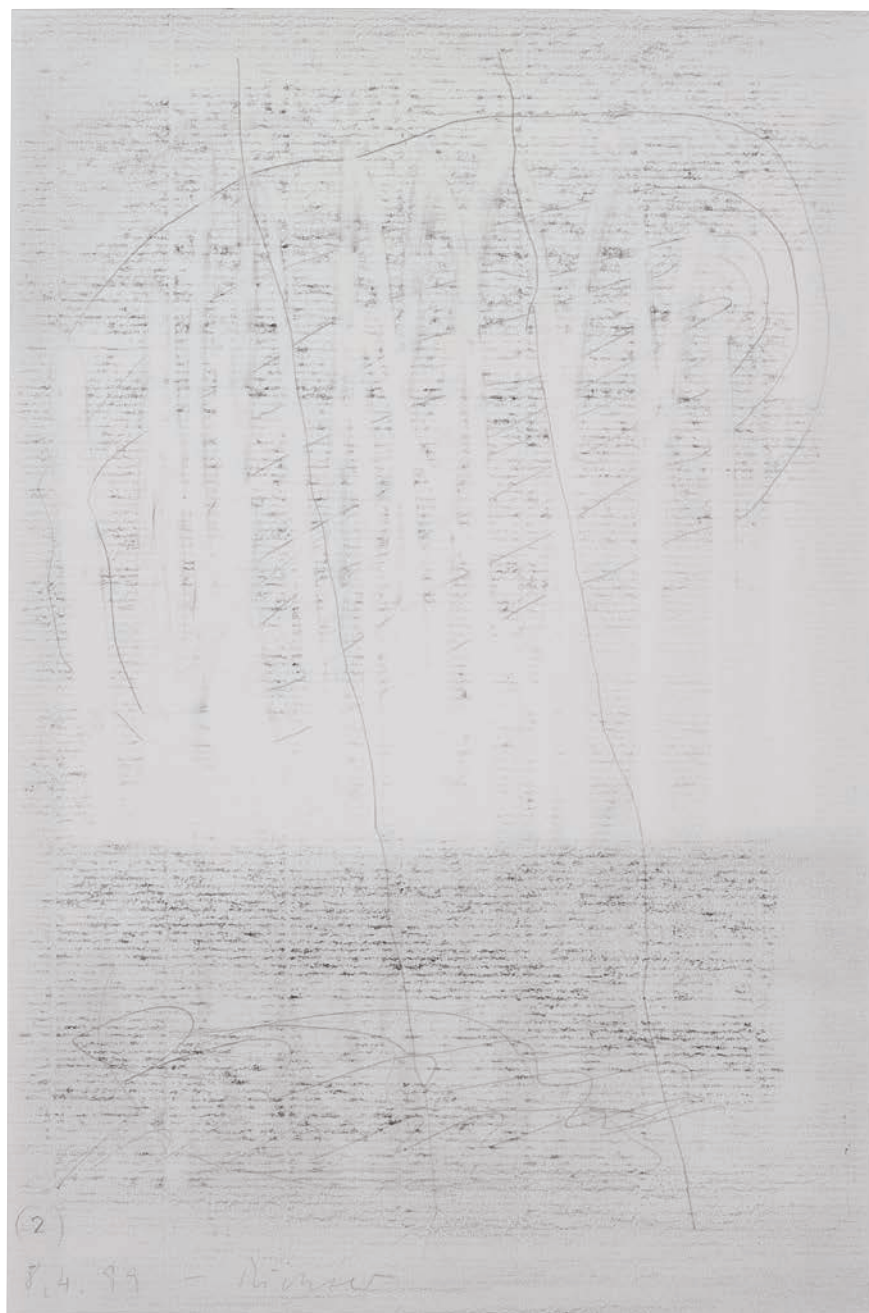 (2)
8.4.99 – Richter